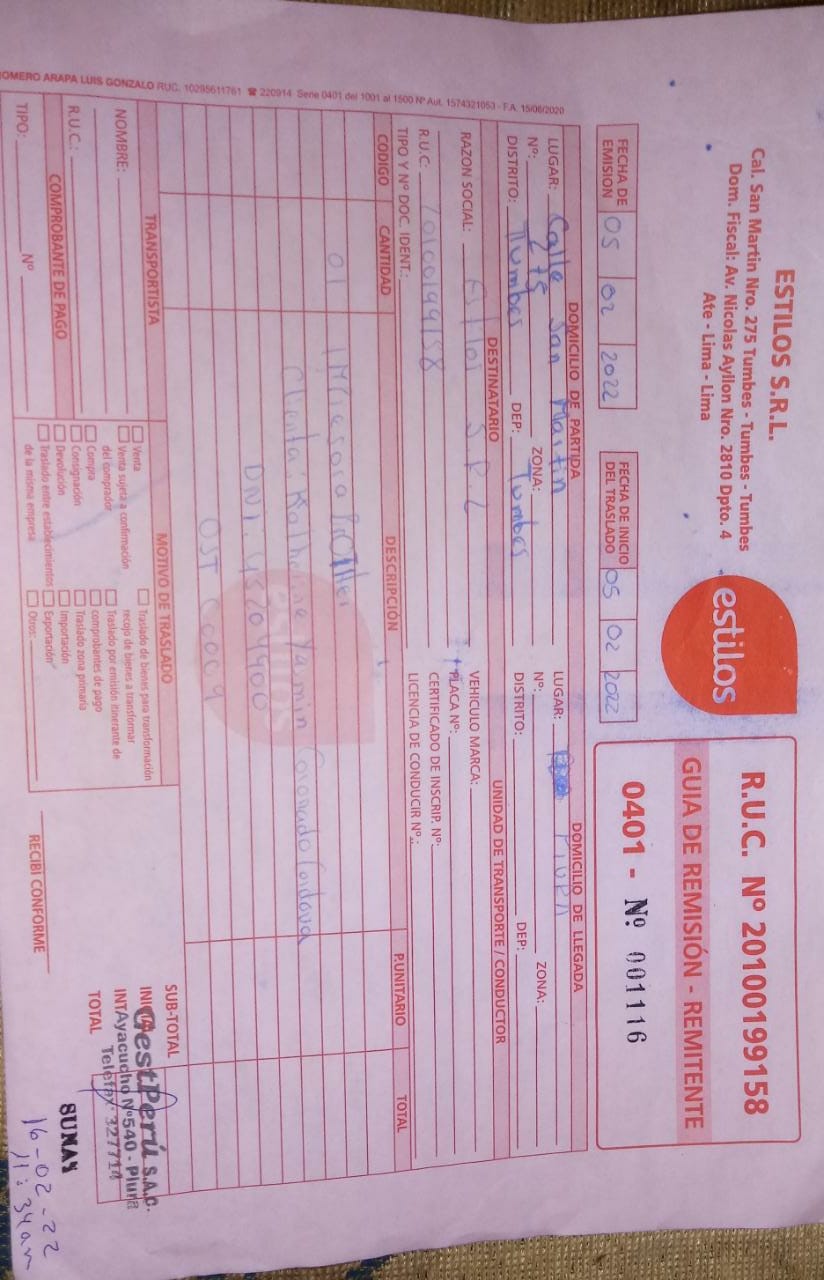 ESTILOS S.R.L.
Cal. San Martin Nro. 275 Tumbes - Tumbes - Tumbes
Dom. Fiscal: Av. Nicolas Ayllon Nro. 2810 Dpto. 4
Ate - Lima - Lima
estilos
R.U.C. Nº 20100199158
GUIA DE REMISIÓN - REMITENTE
0401 - Nº 001116
FECHA DE EMISION 05 02 2022
FECHA DE INICIO DEL TRASLADO 05 02 2022
DOMICILIO DE PARTIDA
LUGAR: Calle San Martin
Nº: 275 ZONA:
DISTRITO: Tumbes DEP: Tumbes
DOMICILIO DE LLEGADA
LUGAR: PIURA
Nº: ZONA:
DISTRITO: DEP:
DESTINATARIO
RAZON SOCIAL: Estilos S R L
R.U.C. 20100199158
TIPO Y Nº DOC. IDENT.:
UNIDAD DE TRANSPORTE / CONDUCTOR
VEHICULO MARCA:
PLACA Nº:
CERTIFICADO DE INSCRIP. Nº:
LICENCIA DE CONDUCIR Nº:
CODIGO CANTIDAD DESCRIPCIÓN P.UNITARIO TOTAL
01
Cliente: Katherine Yasmin Coronado Cordova
DNI: 45209900
OST
TRANSPORTISTA
NOMBRE:
R.U.C.:
COMPROBANTE DE PAGO
TIPO: Nº
MOTIVO DE TRASLADO
Venta
Venta sujeta a confirmación del comprador
Compra
Consignación
Devolución
Traslado entre establecimientos de la misma empresa
Traslado de bienes para transformación
recojo de bienes a transformar
Traslado por emisión itinerante de comprobantes de pago
Traslado zona primaria
Importación
Exportación
Otros:
RECIBI CONFORME
SUB-TOTAL
TOTAL
GestPerú S.A.C.
Ayacucho Nº540 - Piura
Telefax: 327714
16-02-22
11:34am
ROMERO ARAPA LUIS GONZALO RUC. 10295611761 ☎ 220914 Serie 0401 del 1001 al 1500 Nº Aut. 1574321053 - F.A. 15/06/2020